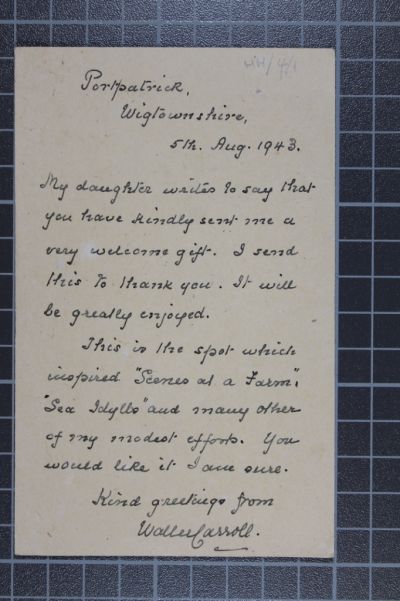 Portpatrick,
Wigtownshire,
5th. Aug. 1943.
My daughter writes to say that
you have kindly sent me a
very welcome gift. I send
this to thank you. It will
be greatly enjoyed.
This is the spot which
inspired "Scenes at a Farm",
"Sea Idylls" and many other
of my modest efforts. You
would like it I am sure.
Kind greetings from
Walter Carroll.